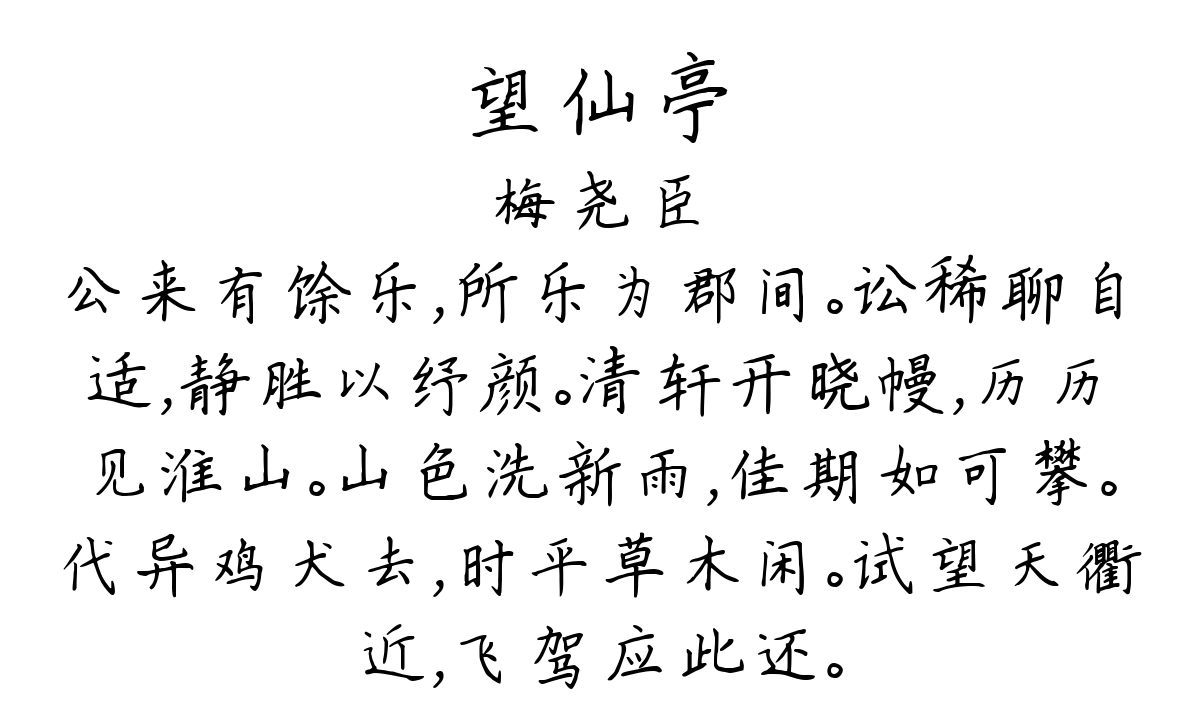 望仙亭
梅尧臣
公来有馀乐,所乐为郡间。讼稀聊自
适,静胜以纾颜。清轩开晓幔,历历
见淮山。山色洗新雨,佳期如可攀。
代异鸡犬去,时平草木闲。试望天衢
近,飞驾应此还。